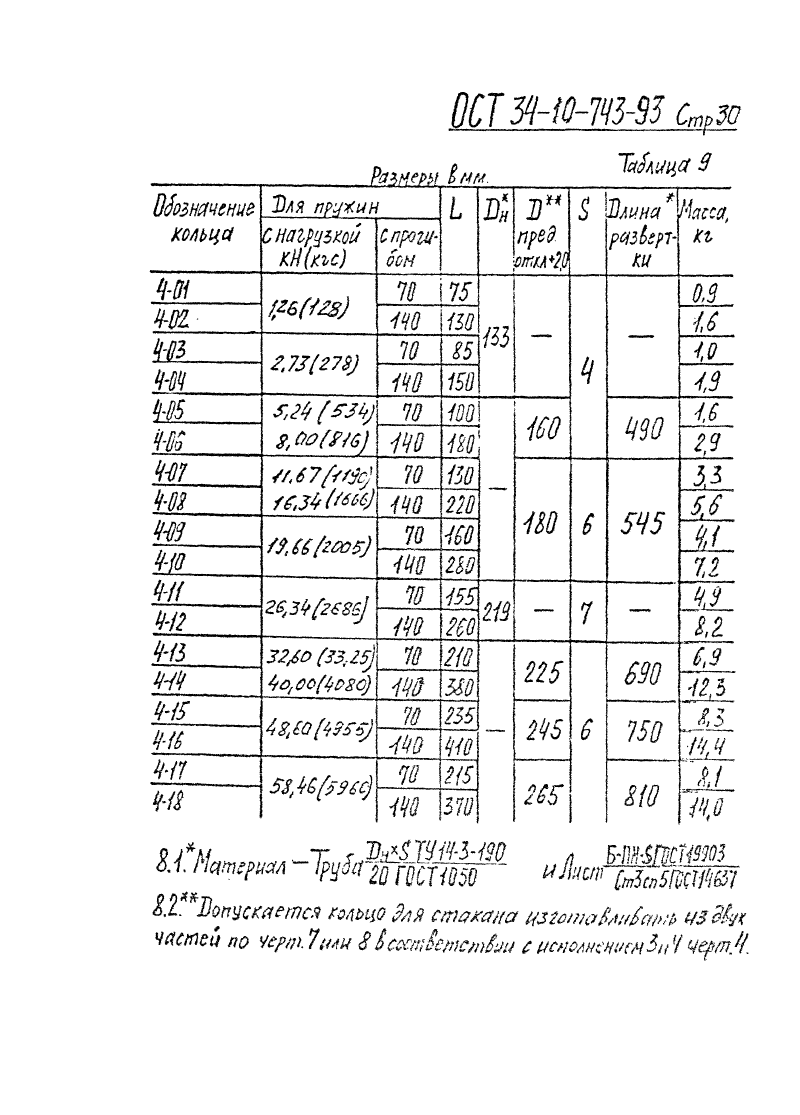 ОСТ 34-10-743-93 Стр 30
Таблица 9
Размеры в мм.
Обозначение кольца Для пружин L Dн* D** пред. откл +2,0 S Длина* развертки Масса, кг
с нагрузкой КН (кгс) с прогибом
4-01 1,26 (128) 70 75 133 — 4 — 0,9
4-02 140 130 1,6
4-03 2,73 (278) 70 85 1,0
4-04 140 150 1,9
4-05 5,24 (534) 70 100 — 160 490 1,6
4-06 8,00 (816) 140 180 2,9
4-07 11,67 (1190) 70 130 180 6 545 3,3
4-08 16,34 (1666) 140 220 5,6
4-09 19,66 (2005) 70 160 4,1
4-10 140 280 7,2
4-11 26,34 (2686) 70 155 219 — 7 — 4,9
4-12 140 260 8,2
4-13 32,60 (33,25) 70 210 — 225 6 690 6,9
4-14 40,00 (4080) 140 380 12,3
4-15 48,60 (4955) 70 235 245 750 8,3
4-16 140 410 14,4
4-17 58,46 (5966) 70 215 265 810 8,1
4-18 140 370 14,0
8.1.* Материал — Труба Dн×S ТУ 14-3-190 / 20 ГОСТ 1050 и Лист Б-ПН-S ГОСТ 19903 / Ст3сп5 ГОСТ 14637
8.2.** Допускается кольцо для стакана изготавливать из двух
частей по черт. 7 или 8 в соответствии с исполнением 3 и 4 черт. 4.